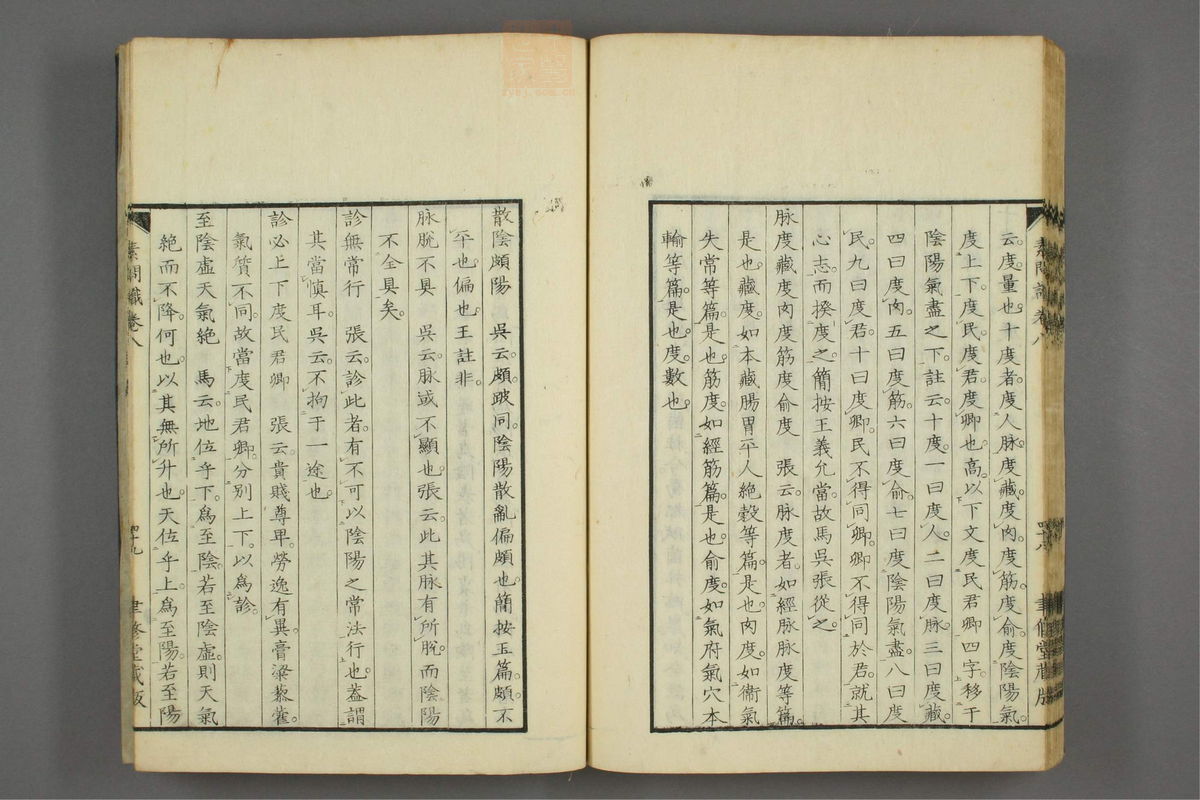 云。度量也。十度者。度人脉。度藏。度肉。度筋。度俞。度陰陽氣。
度上下。度民。度君。度卿也。高。以下文度民君卿四字。移于
陰陽氣盡之下。註云。十度。一曰度人。二曰度脉。三曰度藏。
四曰度肉。五曰度筋。六曰度俞。七曰度陰陽氣盡。八曰度
民。九曰度君。十曰度卿。民不得同卿。卿不得同於君。就其
心志。而揆度之。簡按王義允當。故馬吳張從之。
脉度藏度肉度筋度俞度　張云。脉度者。如經脉脉度等篇。
是也。藏度。如本藏腸胃平人絶穀等篇。是也。肉度。如衞氣
失常等篇。是也。筋度。如經筋篇。是也。俞度。如氣府氣穴本
輸等篇。是也。度。數也。
素問識卷八
四十八
聿修堂藏版
散陰頗陽　吳云。頗。跛同。陰陽散亂偏頗也。簡按玉篇。頗。不
平也。偏也。王註非。
脉脱不具　吳云。脉或不顯也。張云。此其脉有所脱。而陰陽
不全具矣。
診無常行　張云。診此者。有不可以陰陽之常法行也。蓋謂
其當慎耳。吳云。不拘于一途也。
診必上下度民君卿　張云。貴賤尊卑。勞逸有異。膏粱藜藿。
氣質不同。故當度民君卿。分別上下。以爲診。
至陰虚天氣絶　馬云。地位乎下。爲至陰。若至陰虚。則天氣
絶而不降。何也。以其無所升也。天位乎上。爲至陽。若至陽
素問識卷八
四十九
聿修堂藏版